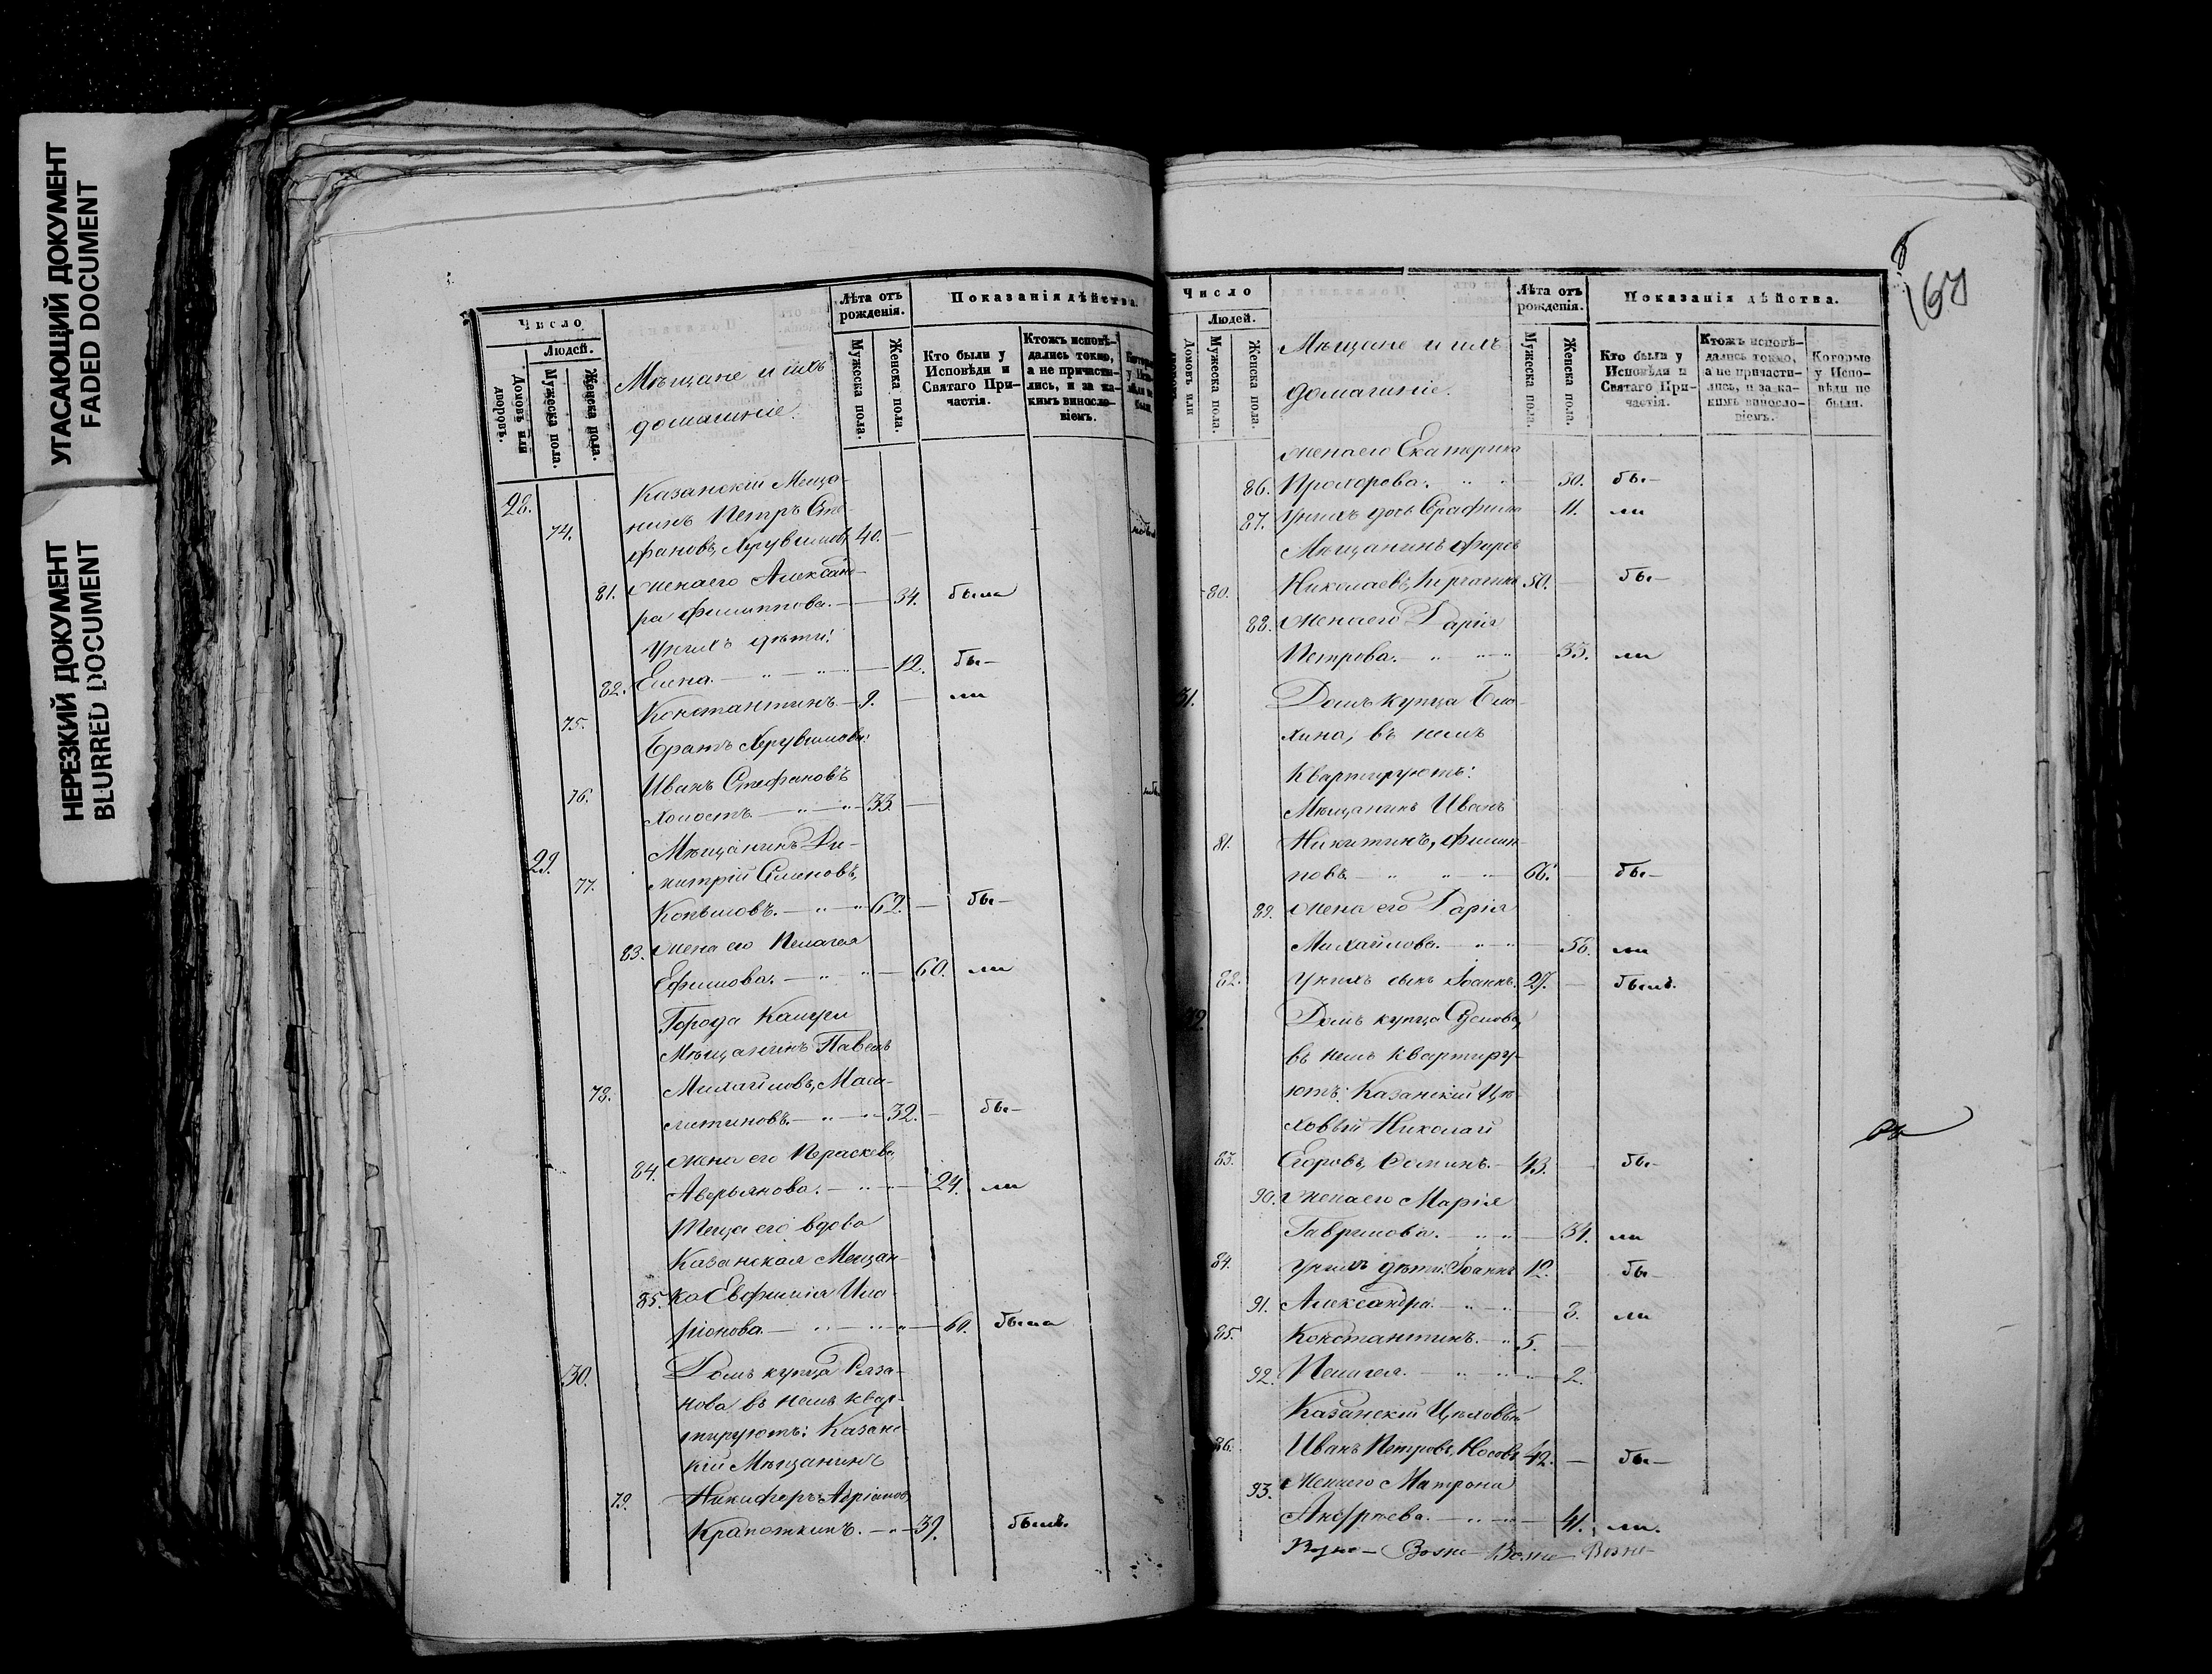 УГАСАЮЩИЙ ДОКУМЕНТ
FADED DOCUMENT
НЕРЕЗКИЙ ДОКУМЕНТ
BLURRED DOCUMENT
Число
Людей.
Домовъ или дворовъ.
Мужеска пола.
Женска пола.
Мѣщане и ихъ
домашніе.
Лѣта отъ рожденія.
Мужеска пола.
Женска пола.
Показанія дѣйства.
Кто были у Исповѣди и Святаго Причастія.
Ктожъ исповѣдались токмо, а не причастились, и за какимъ винословіемъ.
28. Казанскій Меща-
74. нинъ Петръ Сте-
фановъ, Херувимовъ 40. —
81. Жена его Алексан-
ра Филиппова. — 34. была
У нихъ дѣти:
82. Елена. — 12. бы-
75. Константинъ. — 9. — ли
Братъ Херувимова:
76. Иванъ Стефановъ
холостъ. — 33. —
29. Мѣщанинъ Ди-
77. митрій Семеновъ,
Копыловъ. — 62. — бы-
83. Жена его Пелагея
Ефимова. — 60. ли
Города Калуги
Мѣщанинъ Павелъ
78. Михайловъ,
32. — бы-
84. Жена его Параскева
Аверьянова. — 24. ли
Теща его вдова
Казанская Мещан-
85. ка Евфимія Ила-
ріонова. — 60. была
30. Домъ купца Ряза-
нова, въ немъ квар-
тируютъ: Казанс-
кій Мѣщанинъ
79. Никифоръ Адріановъ,
Крапоткинъ. — 39. былъ.
167
Число
Людей.
Домовъ или
Мужеска пола.
Женска пола.
Мѣщане и ихъ
домашніе.
Лѣта отъ рожденія.
Мужеска пола.
Женска пола.
Показанія дѣйства.
Кто были у Исповѣди и Святаго Причастія.
Ктожъ исповѣдались токмо, а не причастились, и за какимъ винословіемъ.
Которые у Исповѣди не были.
Жена его Екатерина
86. Прохорова. — 30. бы-
87. У нихъ дочь Серафима 11. ли
Мѣщанинъ
80. Николаевъ, 50. — бы-
88. Жена его Дарія
Петрова. — 35. ли
31. Домъ купца
хина, въ немъ
Квартируютъ:
Мѣщанинъ Иванъ
81. Никитинъ, Филип-
повъ. — 66. — бы-
89. Жена его Дарія
Михайлова. — 56. ли
82. У нихъ сынъ Іоаннъ. 27. — былъ.
32. Домъ купца
въ немъ квартиру-
ютъ: Казанскій Цѣ-
ховый Николай
83. Егоровъ, Фоминъ. — 43. — бы-
90. Жена его Марія
Гаврилова. — 34. ли
84. У нихъ дѣти: Іоаннъ 12. бы-
91. Александра. — 8. ли
85. Константинъ. — 5. —
92. Пелагея. — 2.
Казанскій Цѣховый
86. Иванъ Петровъ, Носовъ 42. — бы-
93. Жена его Матрона
41. ли.